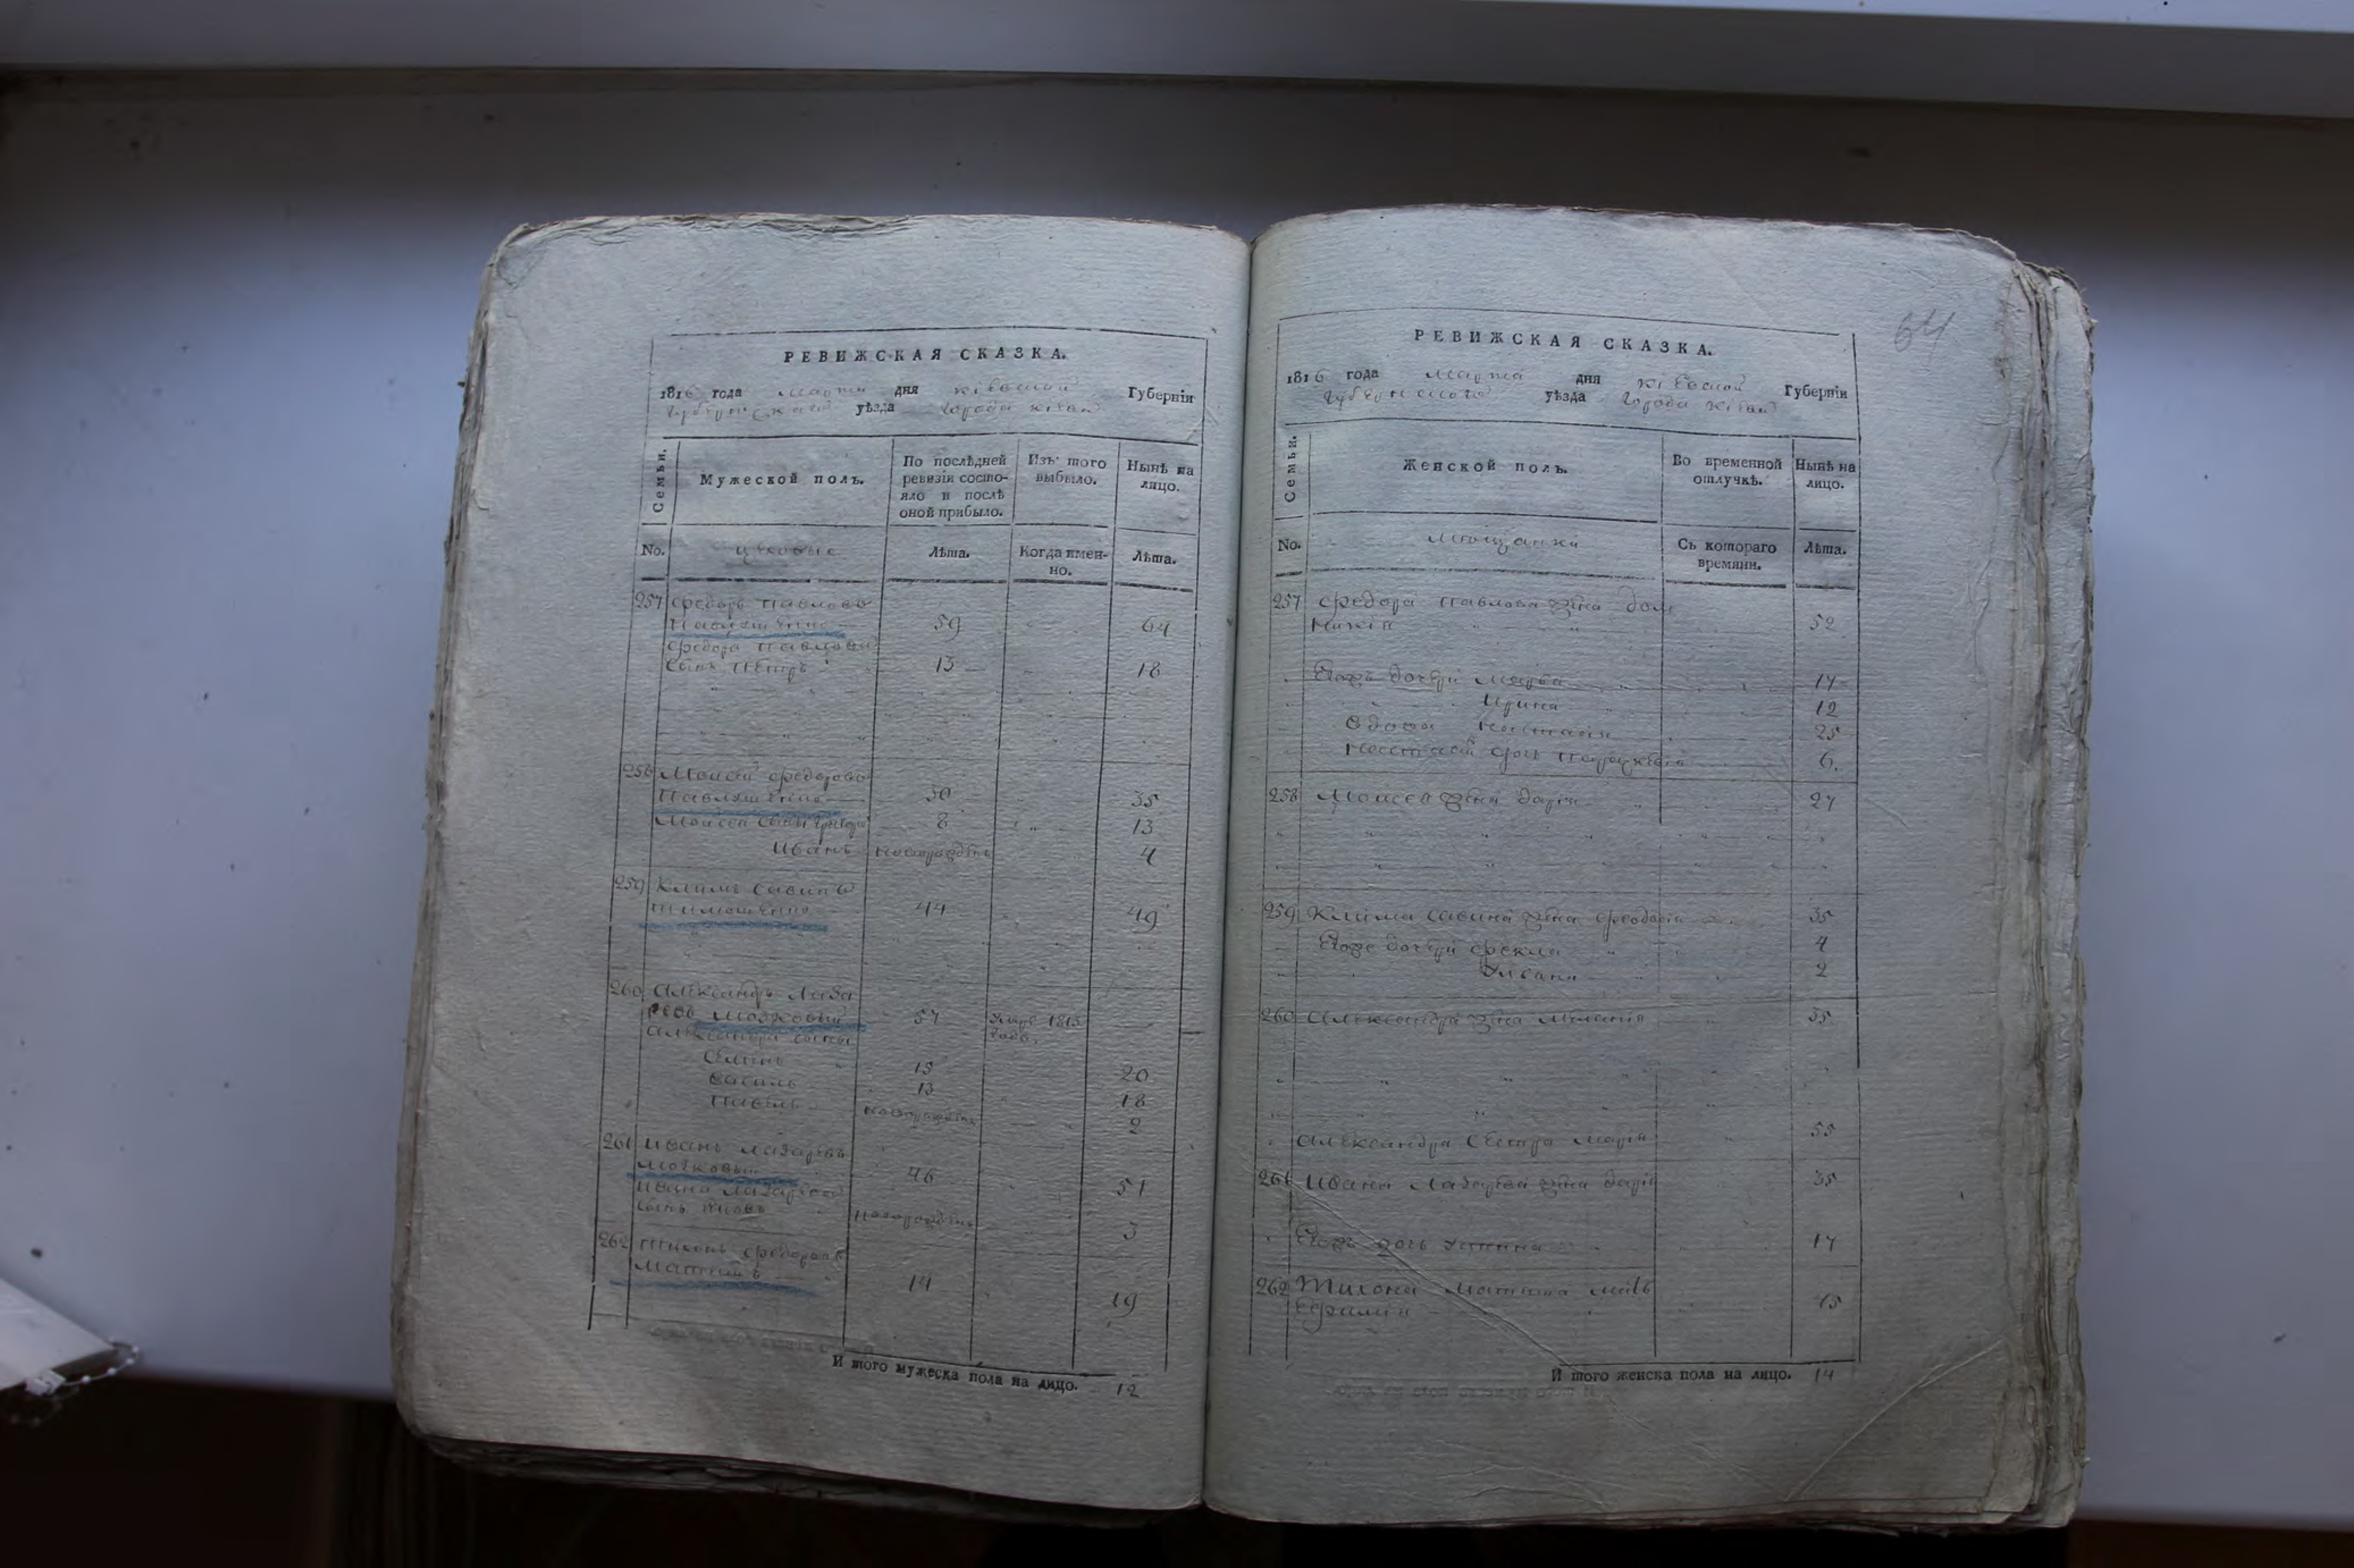 РЕВИЖСКАЯ СКАЗКА.
1816 года марта дня кіевской Губерніи
Губернскаго уѣзда города кіева
Семьи.
Мужеской полъ.
По послѣдней ревизіи состо-
яло и послѣ
оной прибыло.
Изъ того
выбыло.
Нынѣ на
лицо.
No.
цеховые
Лѣта.
Когда имен-
но.
Лѣта.
257 Федоръ Павловъ
Павлушенко 59 64
Федора Павлова
сынъ Петръ 13 18
258 Моисей Федоровъ
Павлушенко 30 35
Моисея сыны Григорий 8 13
Иванъ новорожденъ 4
259 Климъ Савинъ
Тимошенко 44 49
260 Александръ Лаза
ревъ Мозковый 57 умре 1813
года.
Александра сыны
Семенъ 15 20
Василь 13 18
Павелъ новорожденъ 2
261 Иванъ Лазаревъ
Мозковый 46 51
Ивана Лазарева
сынъ Яковъ новорожденъ 3
262 Тихонъ Федоровъ
14 19
И того мужеска пола на лицо. 12
64
РЕВИЖСКАЯ СКАЗКА.
1816 года марта дня кіевской Губерніи
Губернского уѣзда города кіева
Семьи.
Женской полъ.
Во временной
отлучкѣ.
Нынѣ на
лицо.
No.
мещанки
Съ котораго
времяни.
Лѣта.
257 Федора Павлова жена дом
никія 52
Егожъ дочери Марфа 17
Ирина 12
вдова Настасія 25
Настасій дочь 6
258 Моисея жена дарія 27
259 Клима Савина жена Феодосія 35
Егоже дочери Фекла 4
Уляна 2
260 Александра жена Меланія 35
Александра сестра Марія 55
261 Ивана Лазарева жена дарія 35
Егожъ дочь 17
262 Тихона мать
Ефимія 45
И того женска пола на лицо. 14